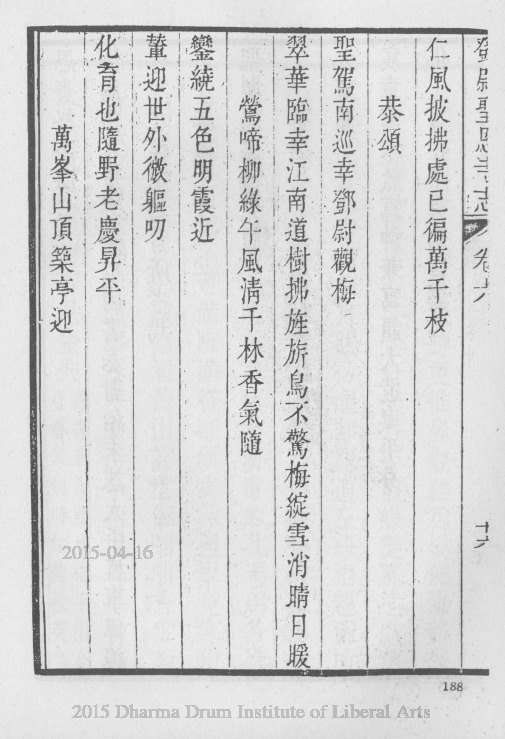 鄧尉聖恩寺志 卷六 十六
仁風披拂處已徧萬千枝
恭頌
聖駕南巡幸鄧尉觀梅
翠華臨幸江南道樹拂旌旂鳥不驚梅綻雪消晴日暖
鶯啼柳綠午風清千林香氣隨
鑾繞五色明霞近
輦迎世外微軀叨
化育也隨野老慶昇平
萬峯山頂築亭迎
188
2015-04-16
2015 Dharma Drum Institute of Liberal Arts